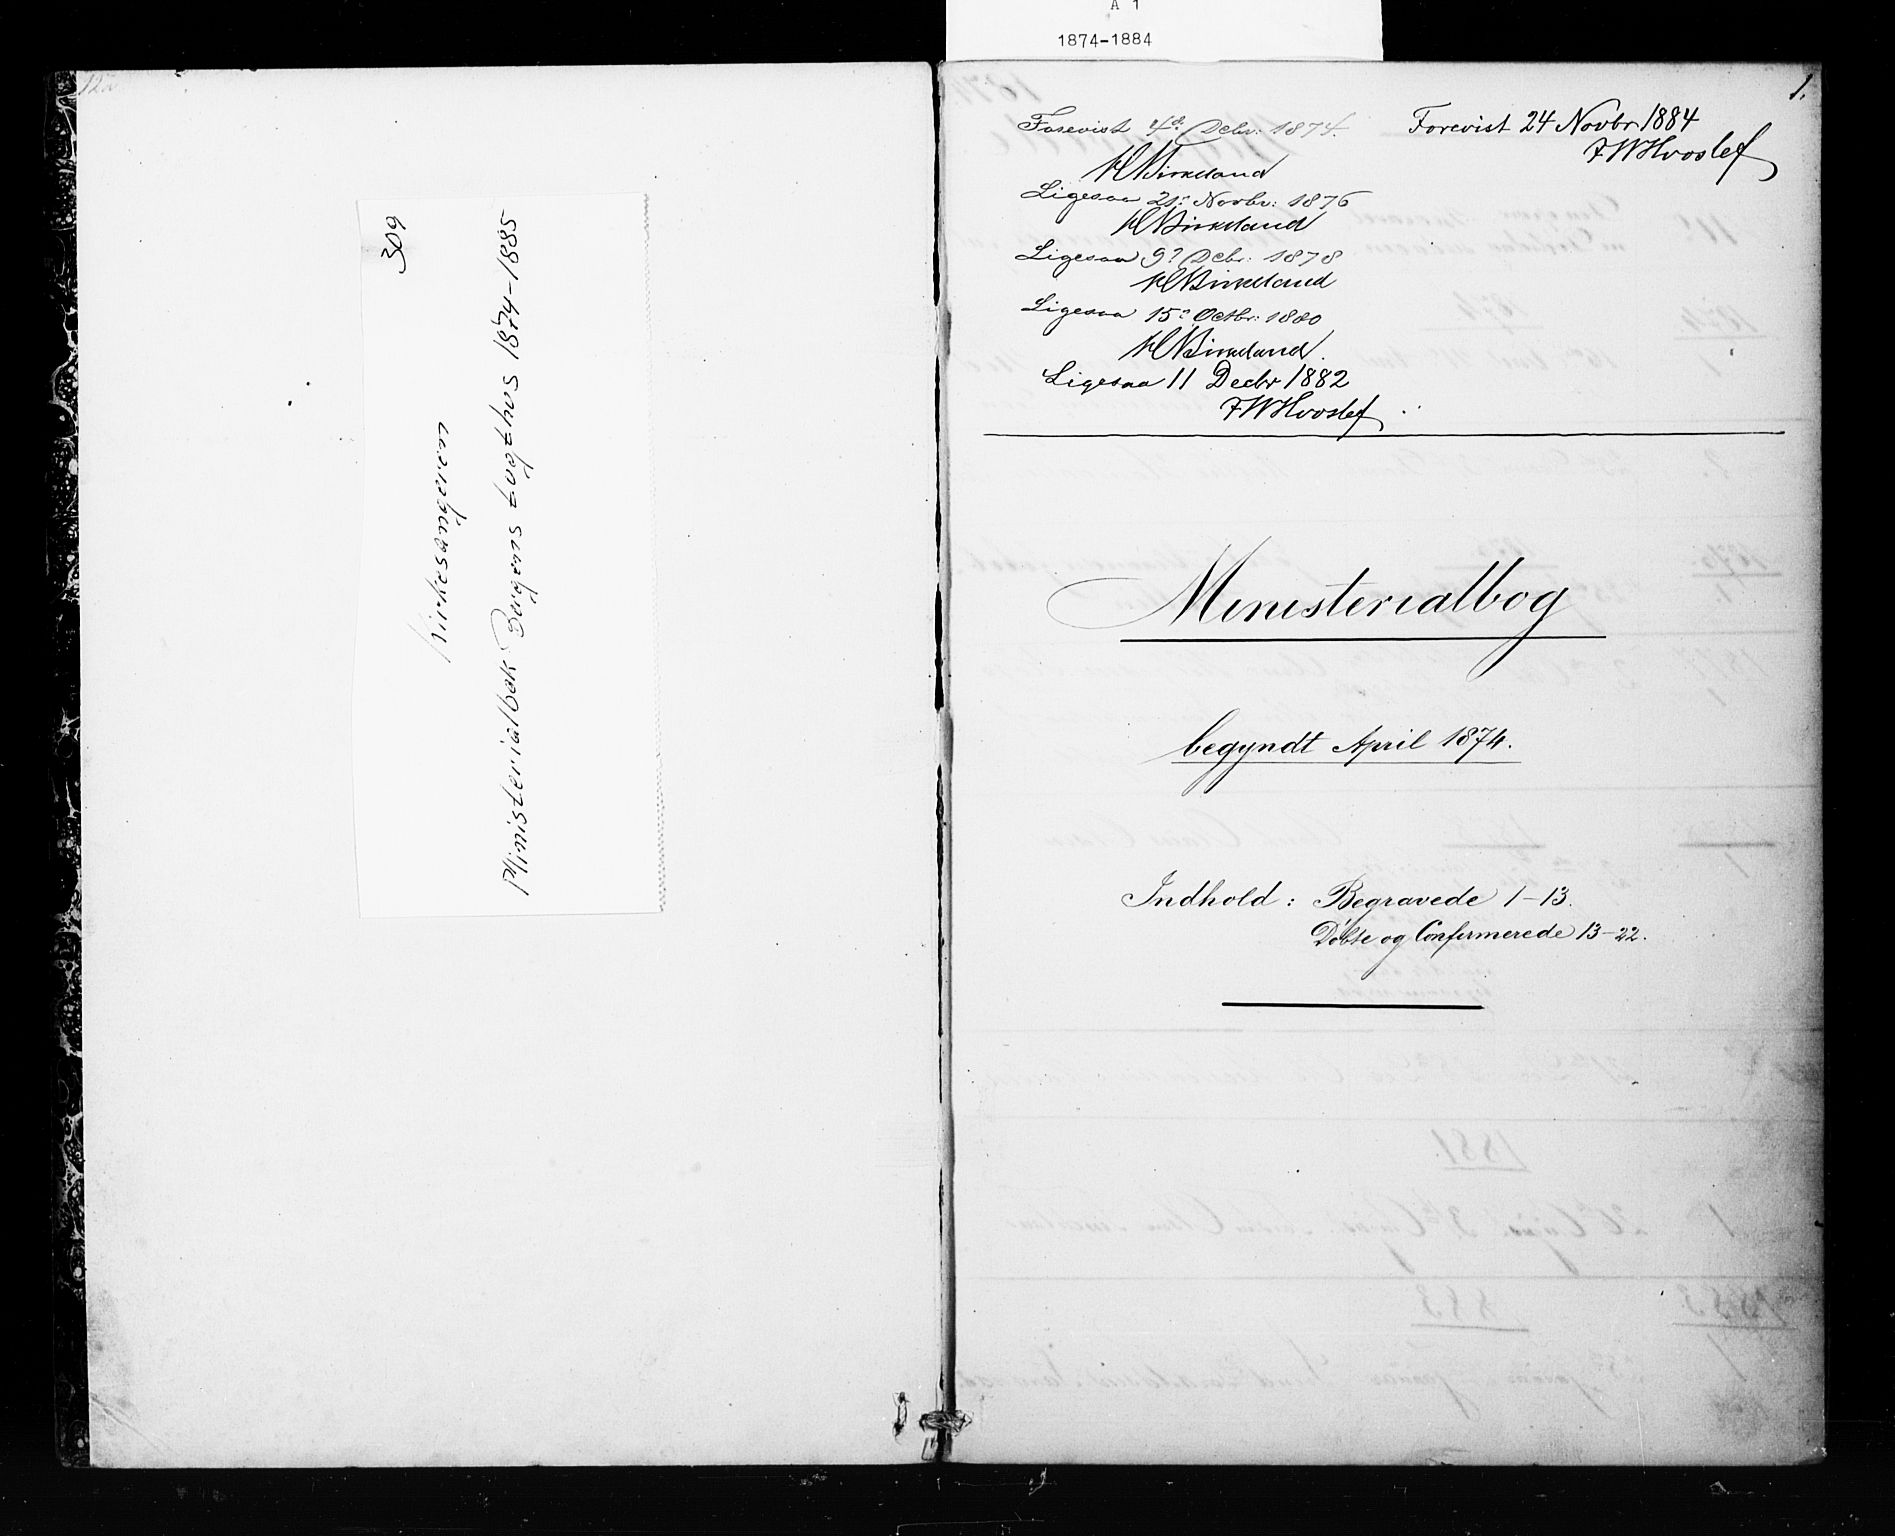 A 1
1874-1884
309
Kirkesangeren
Ministerialbok Bergens tugthus 1874-1885
1.
Forevist 4d. Decbr: 1874.
Birkeland
Ligesaa 21: Novbr: 1876
Birkeland
Ligesaa 9? Decbr: 1878
Birkeland
Ligesaa 15: Octbr: 1880
Birkeland.
Ligesaa 11 Decbr 1882
FWHvoslef
Forevist 24 Novbr 1884
FWHvoslef
Ministerialbog
begyndt April 1874.
Indhold: Begravede 1-13.
Døbte og Confirmerede 13-22.